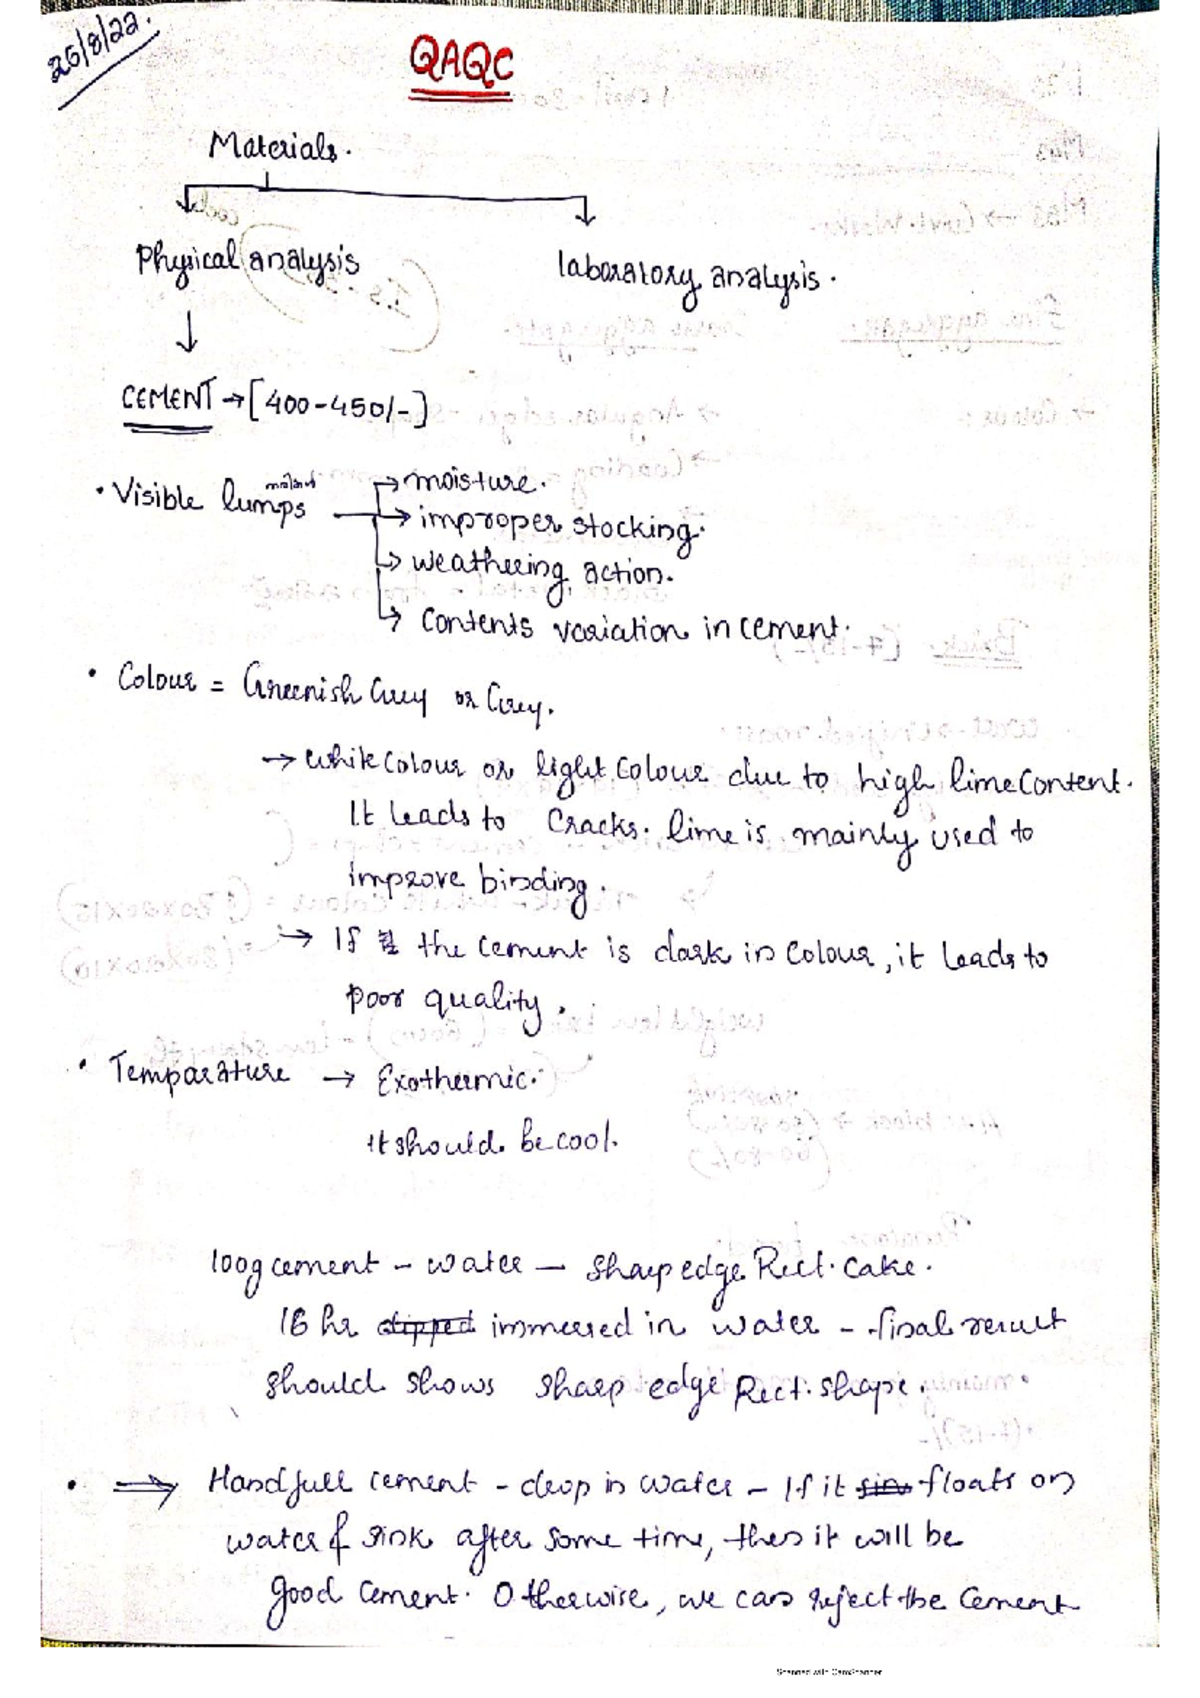 26/8/22.
QAQC
Materials.
Physical analysis
laboratory analysis.
CEMENT → [400-450/-]
• Visible lumps → moisture.
→ improper stocking.
→ weathering action.
→ Contents variation in cement.
• Colour = Greenish Grey or Grey.
→ white colour or light colour due to high lime content.
It leads to cracks. lime is mainly used to
improve binding.
→ If the cement is dark in colour, it leads to
poor quality.
• Temparature → Exothermic.
it should be cool.
100g cement - water - sharp edge Rect. cake.
16 hr dipped immersed in water - final result
should shows sharp edge Rect. shape.
• ⇒ Handfull cement - drop in water - If it sin floats on
water & sink after some time, then it will be
good cement. Otherwise, we can reject the cement
Scanned with CamScanner